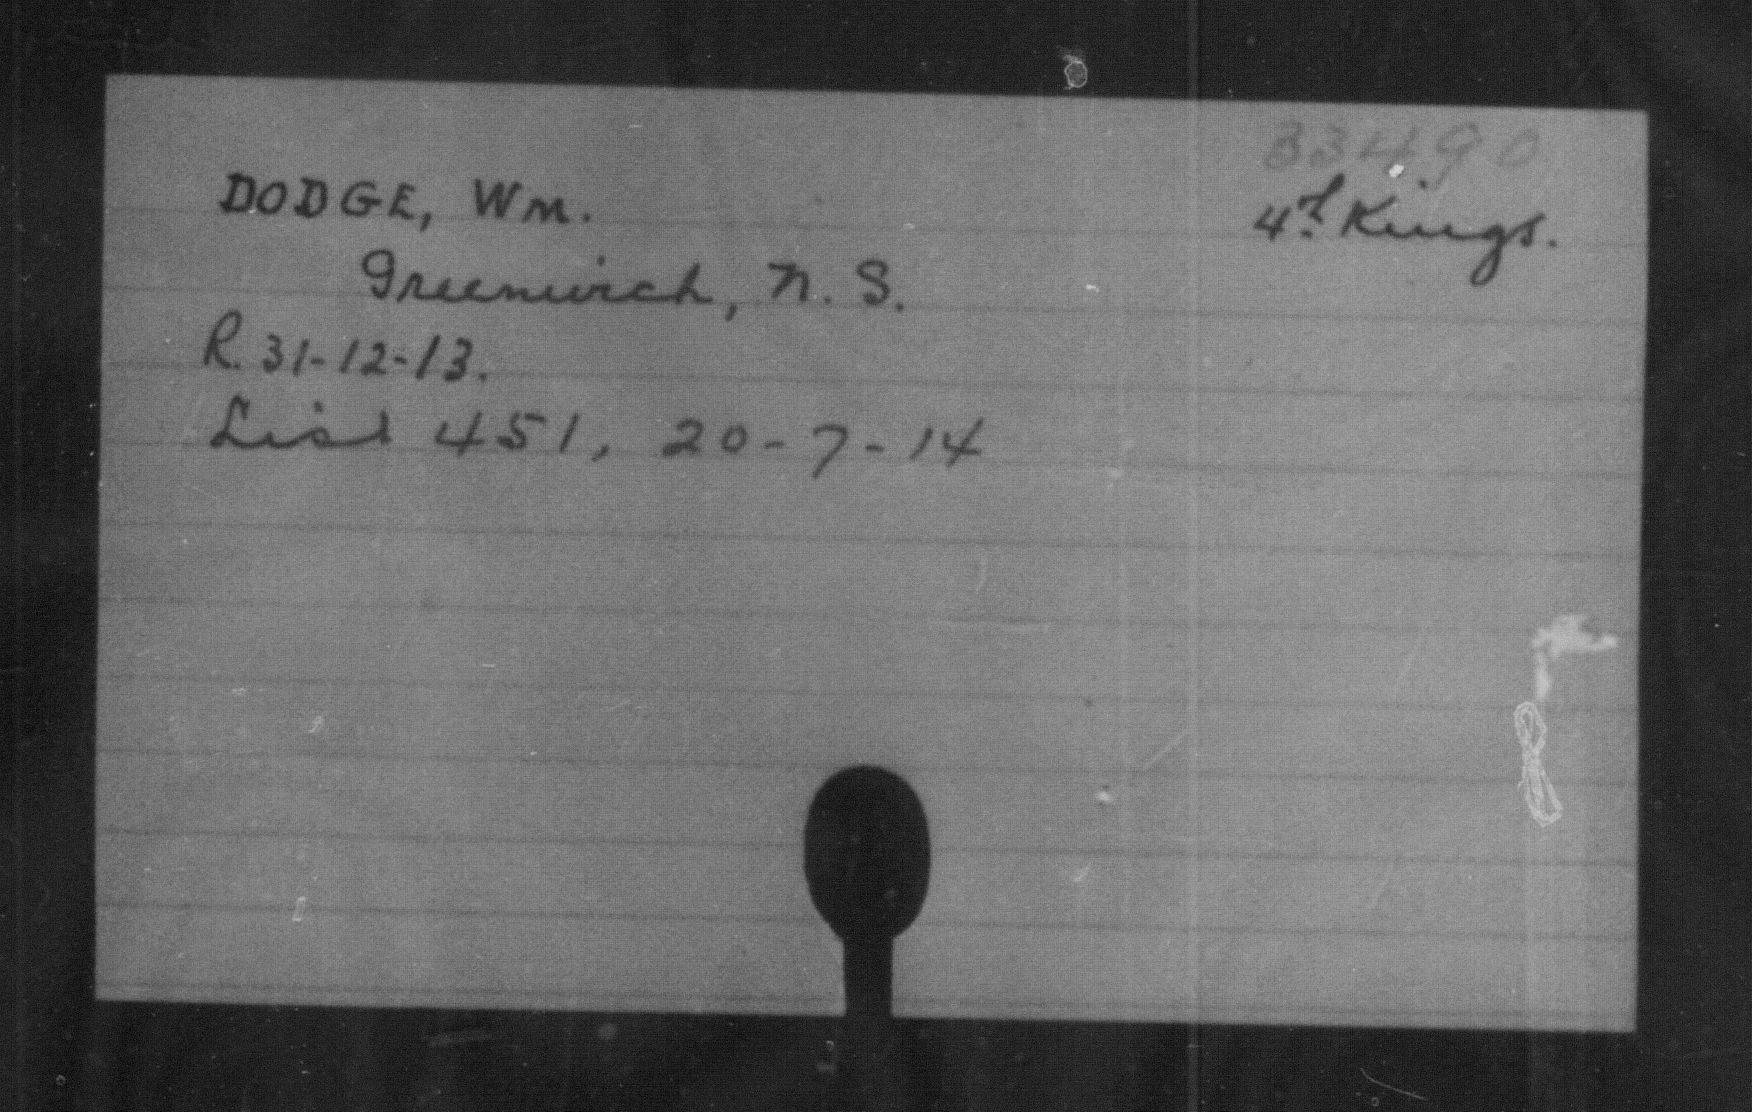 33490
DODGE, Wm. 4th Kings.
Greenwich, N. S.
R. 31-12-13.
List 451, 20-7-14